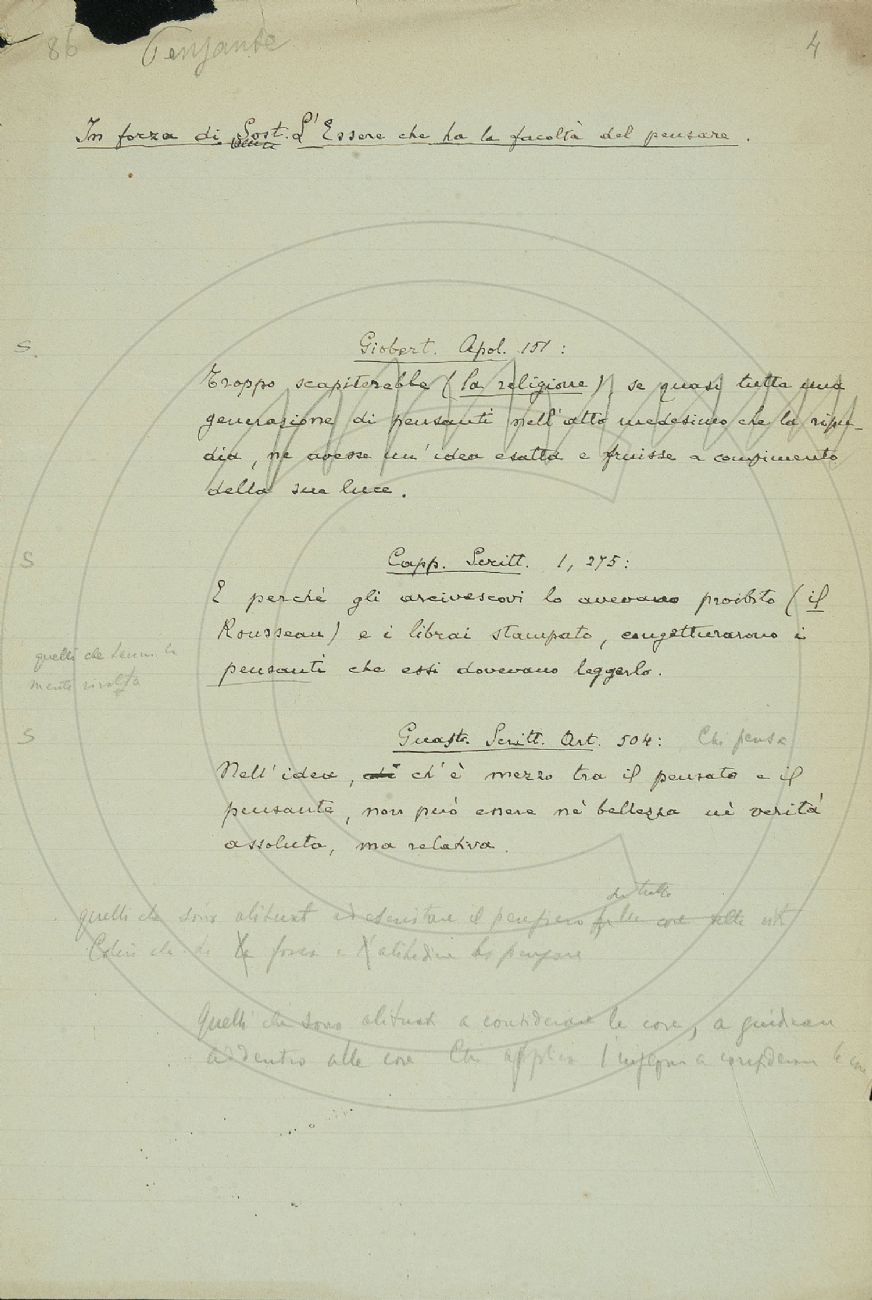 86 Pensante 4
In forza di Sost. L'Essere che ha la facoltà del pensare.
S. Giobert. Apol. 151:
Troppo scapiterebbe (la religione), se quasi tutta una
generazione di pensanti nell'atto medesimo che la ripu-
dia, ne avesse un'idea esatta e fruisse a compimento
della sua luce.
S Capp. Scritt. 1, 275:
E perchè gli arcivescovi lo avevano proibito (il
Rousseau) e i librai stampato, congetturarono i
pensanti che essi dovevano leggerlo.
quelli che
mente rivolta
S Guast. Scritt. Art. 504: Chi pensa
Nell'idea, di ch'è mezzo tra il pensato e il
pensante, non può essere nè bellezza nè verità
assoluta, ma relativa.
di tutto
quelli che sono abituati ad esercitare il pensiero alte
Coloro che forza e a pensare
Quelli che sono abituati a considerare le cose, a guardare
addentro alle cose Chi applica l'ingegno a considerare le cose